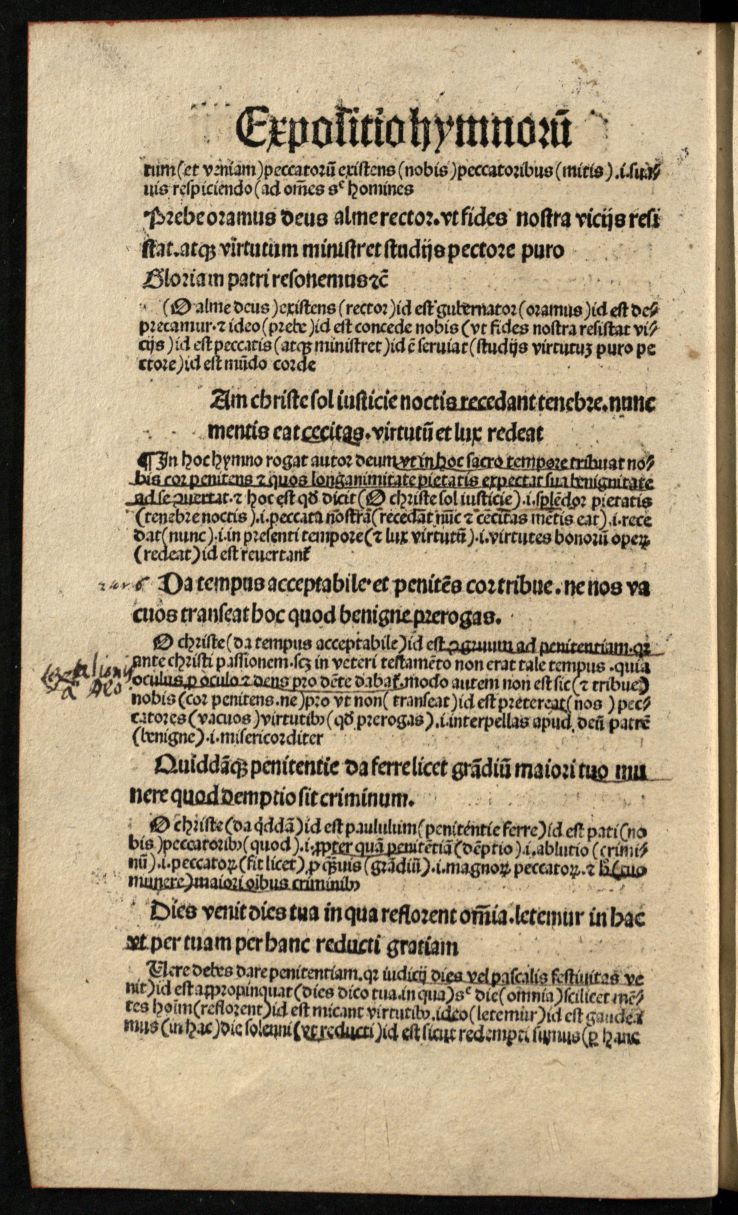 Expositio hymnorū
tum (et veniam) peccatorū existens (nobis) peccatoribus (mitis) .i. sua⸗
uis respiciendo (ad om̄es sᶜ homines
Prebe oramus deus alme rector. vt fides nostra vicijs resi
stat. atqꝫ virtutum ministret studijs pectore puro
Gloriam patri resonemus ⁊c̄
(O alme deus) existens (rector) id est gubernator (oramus) id est de⸗
precamur. ⁊ ideo (prebe) id est concede nobis (vt fides nostra resistat vi⸗
cijs) id est peccatis (atqꝫ ministret) id ē seruiat (studijs virtutuꝫ puro pe
ctore) id est mūdo corde
Am christe sol iusticie noctis recedant tenebre. nunc
mentis eat cecitas. virtutū et lux redeat
¶ In hoc hymno rogat autor deum vt in hoc sacro tempore tribuat no⸗
bis cor penitens ⁊ quos longanimitate pietatis expectat sua benignitate
ad se ꝯuertat. ⁊ hoc est qd̄ dicit (O christe sol iusticie) .i. splēdor pietatis
(tenebre noctis) .i. peccata nostra (recedāt nūc ⁊ cecitas mētis eat) .i. rece
dat (nunc) .i. in presenti tempore (⁊ lux virtutū) .i. virtutes bonorū operꝝ
(redeat) id est reuertant᷑
Da tempus acceptabile et penitēs cor tribue. ne nos va
cuos transeat hoc quod benigne prerogas.
O christe (da tempus acceptabile) id est ꝯgruum ad penitentiam. qꝛ
ante christi passionem. scꝫ in veteri testamēto non erat tale tempus. quia
oculus ꝓ oculo ⁊ dens pro dēte dabat᷑. modo autem non est sic (⁊ tribue)
nobis (cor penitens. ne) pro vt non (transeat) id est pretereat (nos) pec⸗
catores (vacuos) virtutibꝫ (qd̄ prerogas) .i. interpellas apud deū patrē
(benigne) .i. misericorditer
Quiddāqꝫ penitentie da ferre licet grādiū maiori tuo mu
nere quo d demptio sit criminum.
O christe (da qddā) id est paululum (penitentie ferre) id est pati (no
bis) peccatoribꝫ (quod) .i. ꝓpter quā penitētiā (dēptio) .i. ablutio (crimi⸗
nū) .i. peccatoꝝ (fit licet) ꝑ qͣuis (grādiū) .i. magnoꝝ peccatoꝝ. ⁊ h̄ (tuo
munere) maiori oībus criminibꝫ
Dies venit dies tua in qua reflorent om̄ia. letemur in hac
vt per tuam per hanc reducti gratiam
Uere debes dare penitentiam. qꝛ iudicij dies vel pascalis festiuitas ve
nit) id est appropinquat (dies dico tua. in qua) sᶜ die (omnia) scilicet mē⸗
tes hoīm (reflorent) id est micant virtutibꝫ. ideo (letemur) id est gaudea
mus (in hac) die solenni (vt reducti) id est sicut redempti sumus (ꝑ hanc